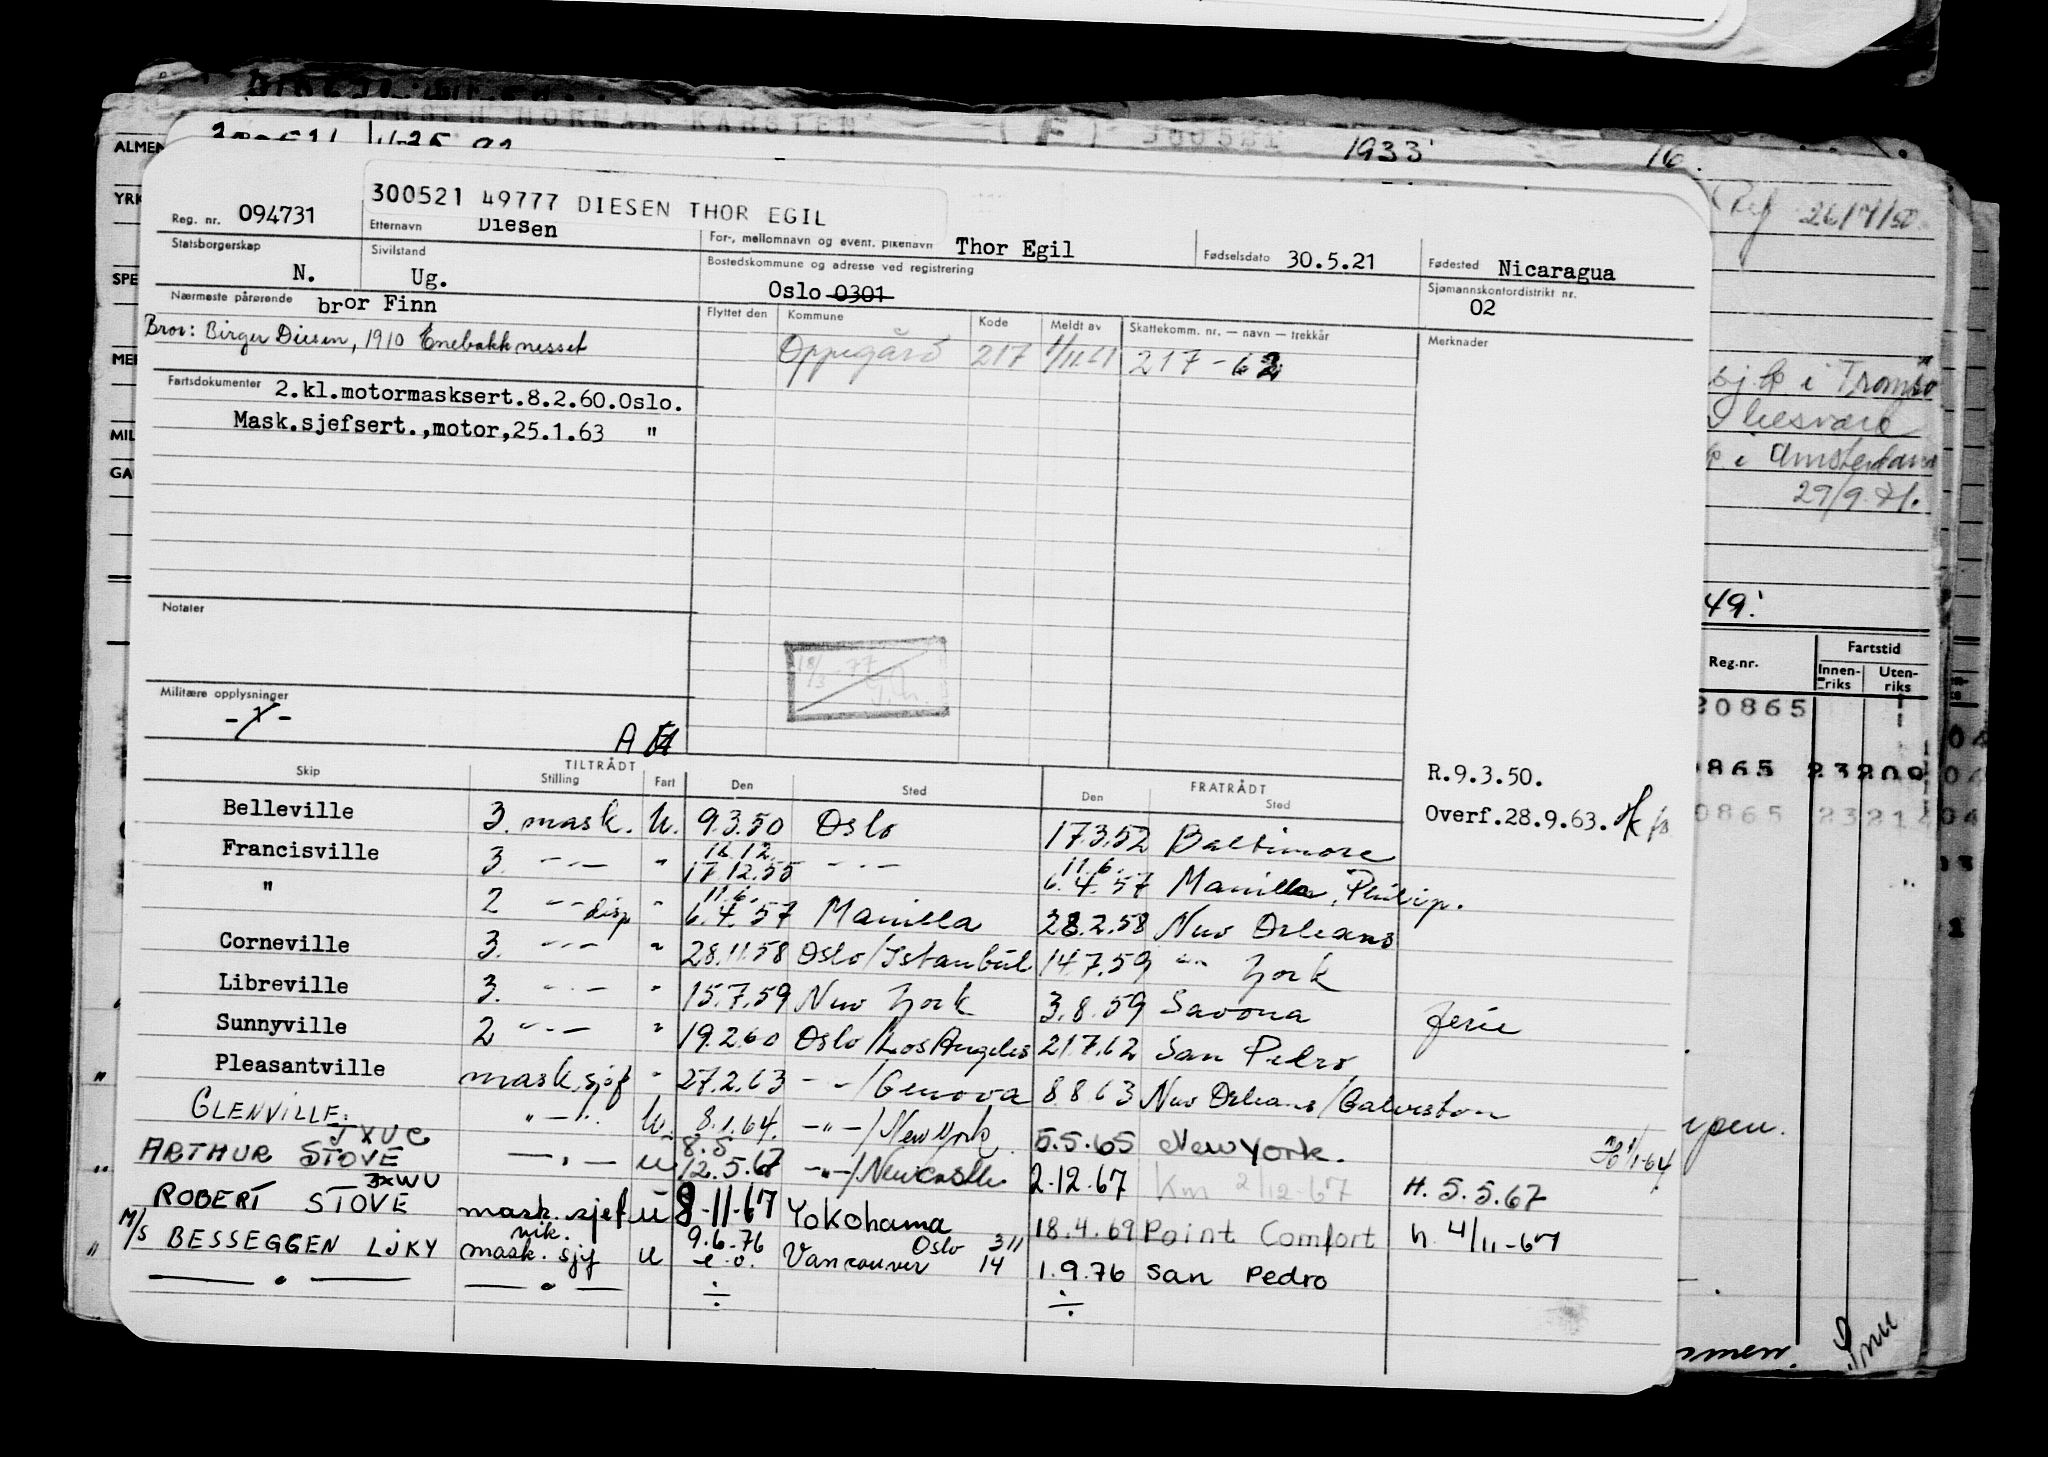 HANSEN NORMAR KARSTEN (F) 300521
ALMEN
1933
16.
YRK
26/7/50
300521 49777 DIESEN THOR EGIL
Reg. nr. 094731
Etternavn Diesen
For-, mellomnavn og event. pikenavn Thor Egil
Fødselsdato 30.5.21
Fødested Nicaragua
Statsborgerskap N.
Sivilstand Ug.
Bostedskommune og adresse ved registrering
Oslo 0301
Sjømannskontordistrikt nr.
02
Nærmeste pårørende bror Finn
Bror: Birger Diesen, 1910 Enebakkneset
Flyttet den Kommune Kode Meldt av Skattekomm. nr. — navn — trekkår Merknader
Oppegård 217 1/11.61 217-62
Fartsdokumenter 2.kl.motormasksert.8.2.60.Oslo.
Mask.sjefsert.,motor,25.1.63 "
i Tromsø
i Amsterdam
29/9.71.
Notater
49!
18/3-77
Militære opplysninger
A
Reg.nr. Fartstid
Innen-riks Uten-riks
20865
0865 23209
0865 23214
R.9.3.50.
Overf.28.9.63.
Skip TILTRÅDT FRATRÅDT
Stilling Fart Den Sted Den Sted
Belleville 3. mask. u. 9.3.50 Oslo 17.3.52 Baltimore
Francisville 3. —"— " 16.12. 17.12.55 —"— 11.6. 6.4.57 Manilla, Philip.
" 2 —"— disp " 11.6. 6.4.57 Manilla 28.2.58 New Orleans
Corneville 3. —"— " 28.11.58 Oslo/Istanbul 14.7.59 —"— York
Libreville 3. —"— " 15.7.59 New York 3.8.59 Savona ferie
Sunnyville 2 —"— " 19.2.60 Oslo/Los Angeles 21.7.62 San Pedro
Pleasantville mask.sjef " 27.2.63 —"—/Genova 8.8.63 New Orleans/Galveston
GLENVILLE. —"— u. 8.1.64. —"—/New York 5.5.65 New York. 8/1-64
JXUC
ARTHUR STOVE —"— u 8.5 12.5.67 —"—/Newcastle 2.12.67 Km 2/12-67 H. 5.5.67
JXWU
ROBERT STOVE mask. sjef u 8-11-67 Yokohama 18.4.69 Point Comfort h. 4/11-67
M/S BESSEGGEN LJKY vik. mask. sjef u 9.6-76 e.o. Vancouver Oslo 311 14 1.9.76 San Pedro
—"— —"— ÷ ÷